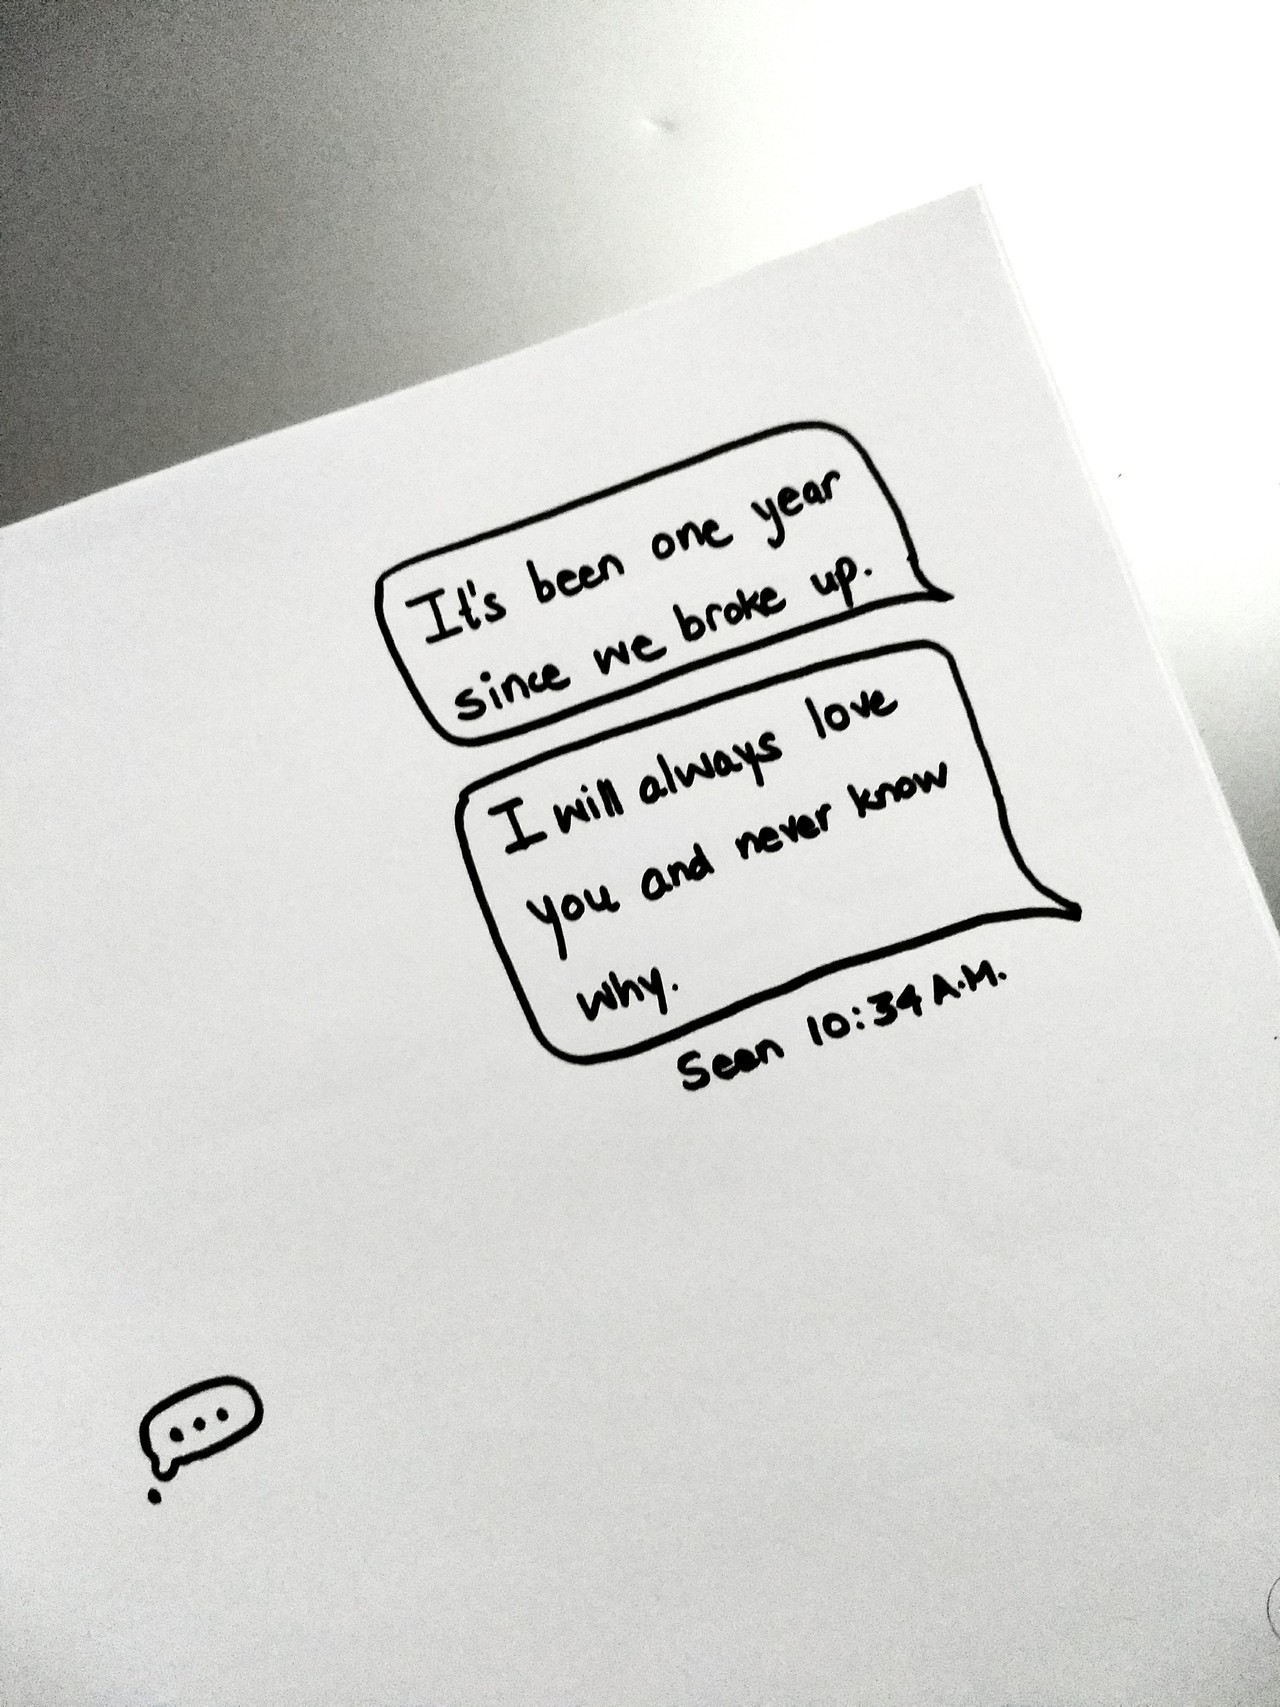 It's been one year
since we broke up.
I will always love
you and never know
why.
Seen 10:34 A.M.
...